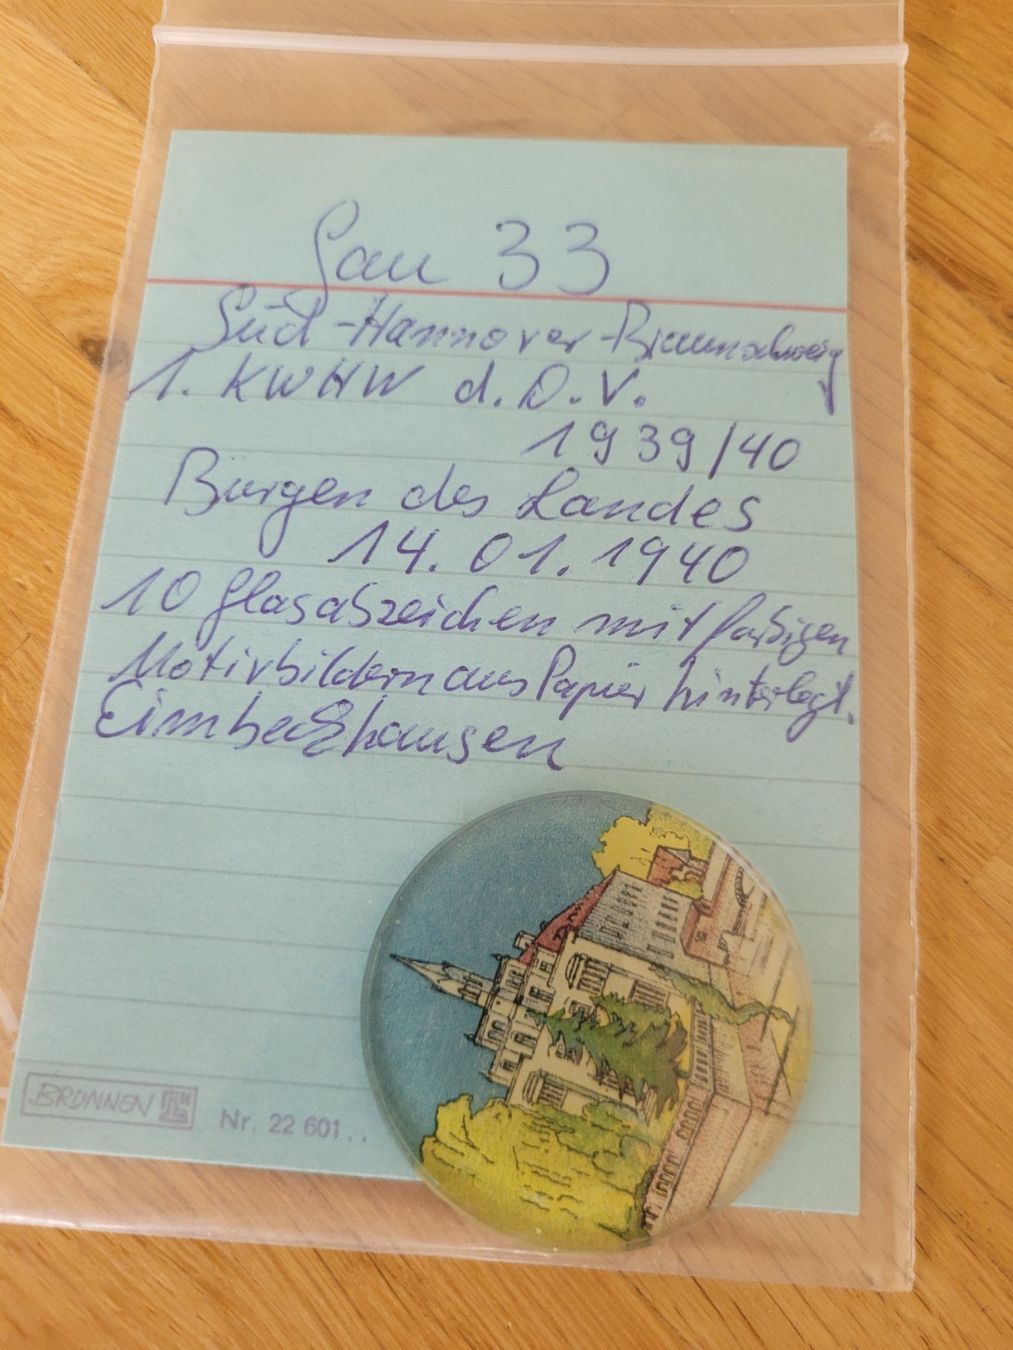 Gau 33
Süd-Hannover-Braunschweig
1. KWHW d. D. V.
1939/40
Burgen des Landes
14.01.1940
10 Glasabzeichen mit farbigen
Motivbildern aus Papier hinterlegt.
Eimbeckhausen
BRUNNEN
Nr. 22 601..